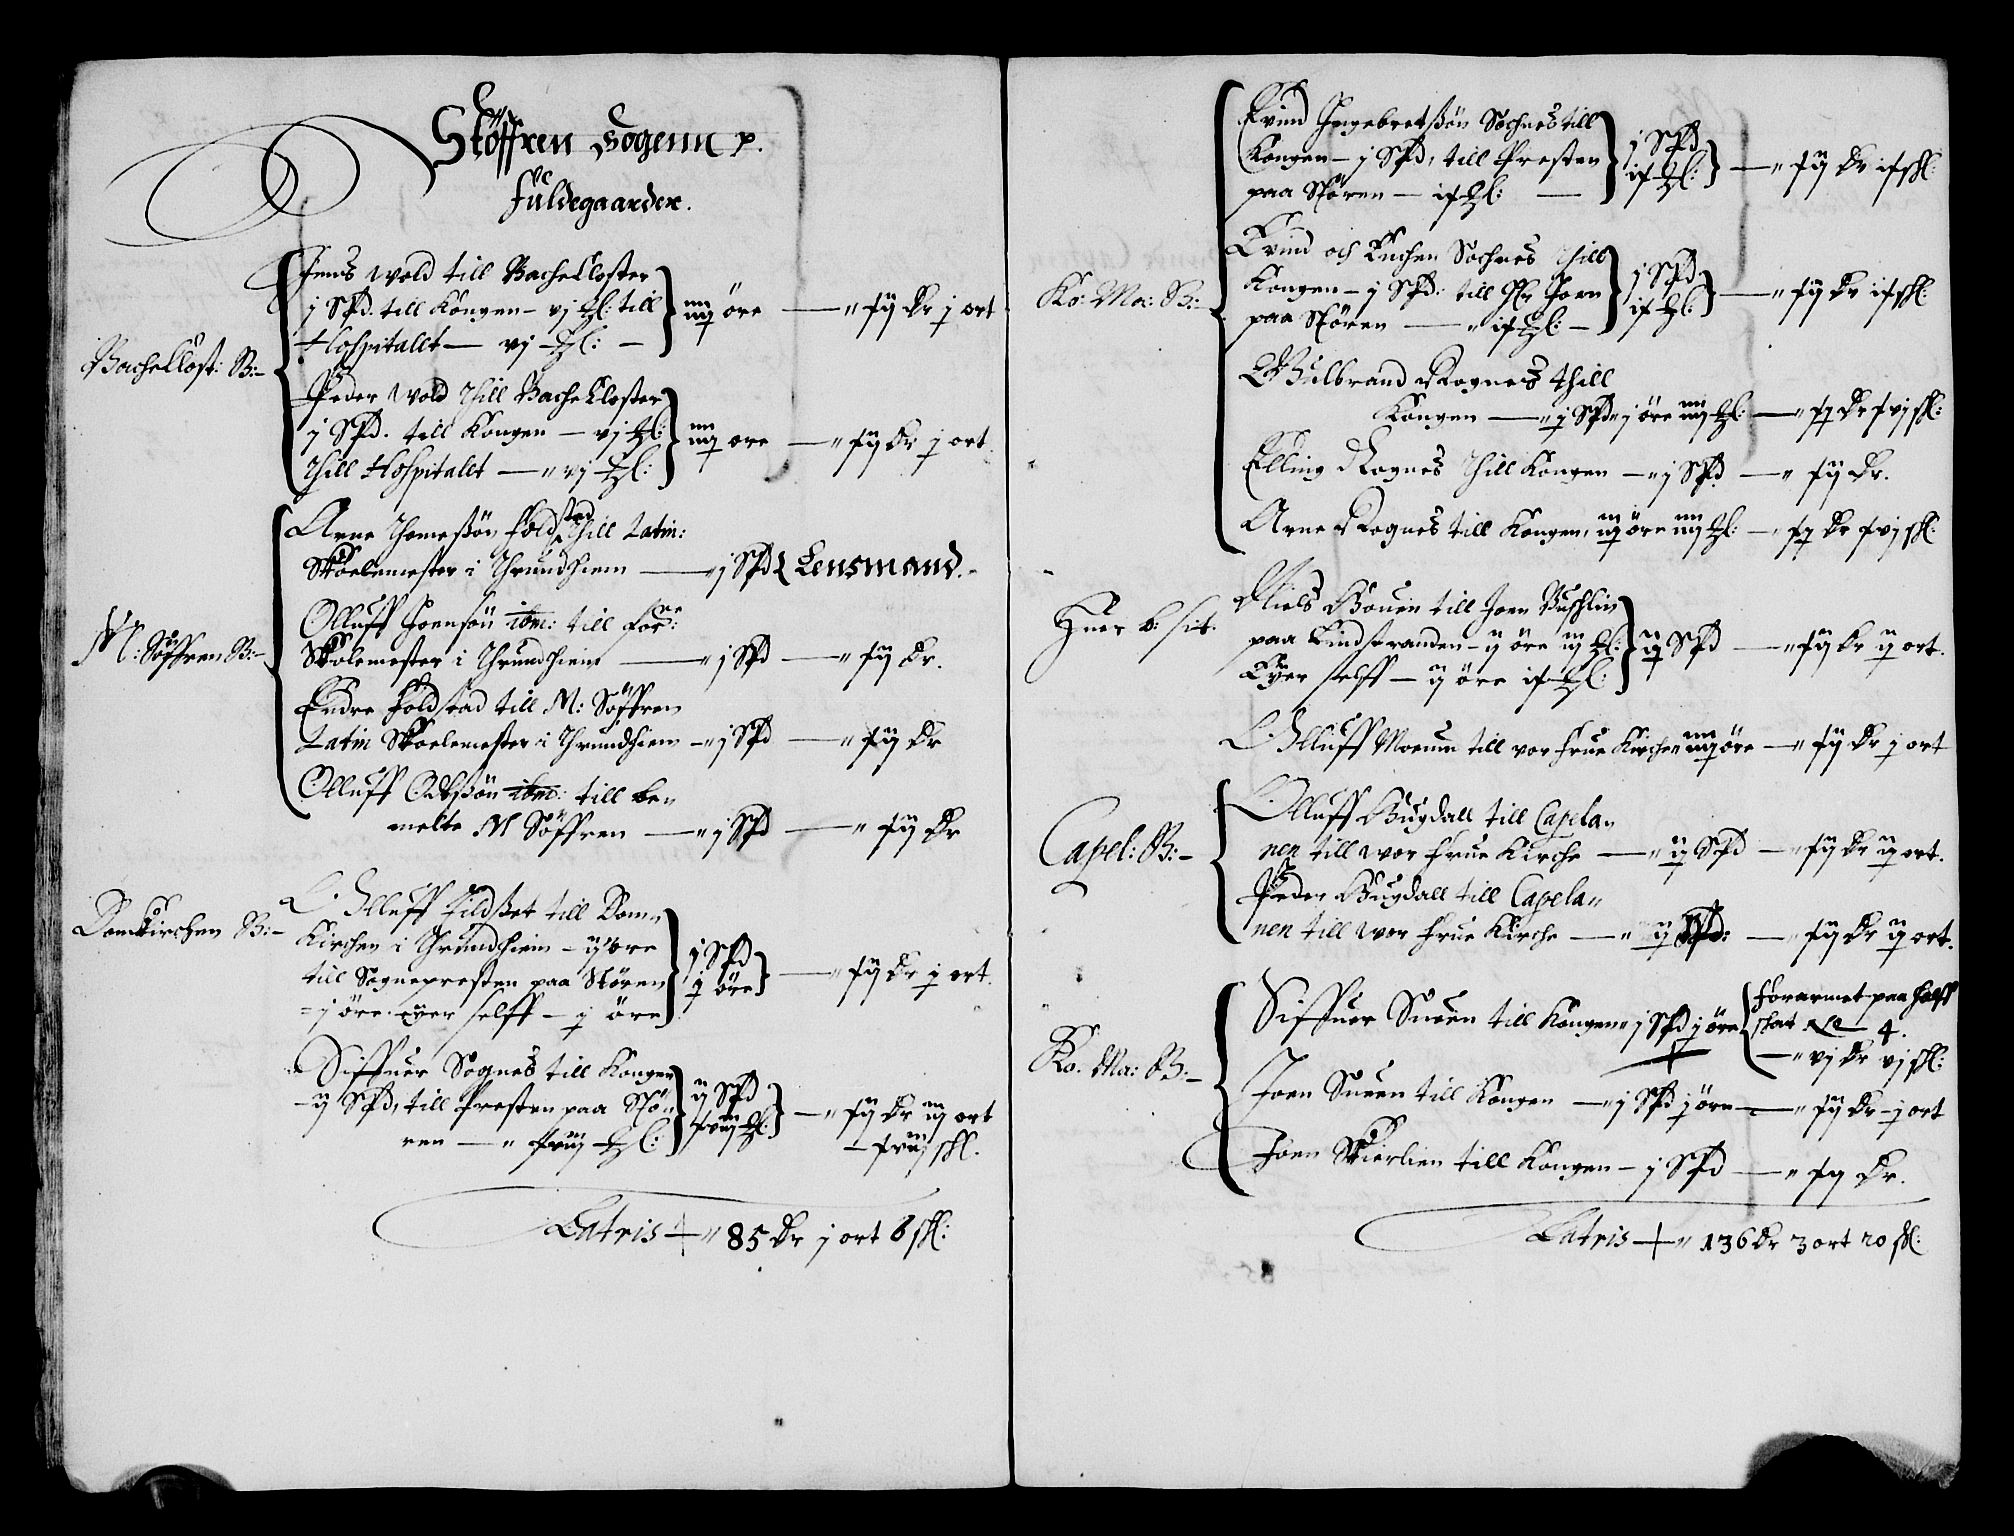 Støffren Sogenn p.
Fuldegaarder.
Bachekost: B:-
Jens Wold till Bache Closter
j Spd. till Kongen - vj ℔: till
Hospitallt - vj ℔: -
iiij öre - " xij Dr j ort
Peder Wold thill Bache Closter
j Spd. till Kongen - vj ℔:
thill Hospitallt - " vj ℔:
iiij ore - " xij Dr j ort
M: Söffren B:-
Arne Thomessön Foldstad thill Latin:
Skoelemester i Thrundhiem - " j Spd { Lensmand.
Olluff Joensön ibm: till for:ne
Skolemester i Thrundhiem - " j Spd - " xij Dr.
Endre Foldstad till M: Söffren
Latin Skoelemester i Thrundhiem - " j Spd - " xij Dr
Olluff Odessön ibm: till ben
melte M Söffren - " j Spd - " xij Dr
Domkirchen B:-
Olluff Fildsset till Dom"
Kirchen i Thrundhiem - ij öre
till Sognepresten paa Stören
- j öre. eyer selff - j öre
j Spd
j öre - " xij Dr j ort.
Siffuer Sognes till Kongen
- ij Spd, till Presten paa Stö"
ren - " xviij ℔:
ij Spd
xviij ℔: - " xij Dr iij ort
- xviij sk.
Latris - " 85 Dr j ort 6 sk:
Ko: Ma: B:-
Evind Ingebretssön Sochnes till
Kongen - j Spd, till Presten
paa Stören - ix ℔: -
j Spd
ix ℔: - " xij Dr ix sk:
Evind och Kuchen Sochnes thill
Kongen - j Spd: till Hr Joen
paa Stören - " ix ℔: -
j Spd
ix ℔: - " xij Dr ix sk:
Gulbrand Rognes thill
Kongen - " j Spd " j öre iiij ℔: - " xj Dr xvj sk:
Elling Rognes thill Kongen - " j Spd - " xij Dr.
Arne Rognes till Kongen, iij öre iiij ℔: - " xj Dr xvj sk:
Huer b: sit.
Niels Bouen till Joen Buschlin
paa Lindstranden - ij öre iij ℔:
Eyer selff - ij öre ix ℔:
ij Spd - " xij Dr ij ort.
Olluff Moeum till vor Frue Kirche " iiij öre - " xij Dr j ort
Capel: B:-
Olluff Bugdall till Capela"
nen till wor Frue Kirche - " ij Spd - " xij Dr ij ort.
Peder Bugdall till Capela"
nen till wor Frue Kirche - " ij Spd: - " xij Dr ij ort.
Ko. Ma: B:-
Siffuer Sueen till Kongen " j Spd j öre { forarmet paa halff
skat No 4.
- " vj Dr vj sk:
Joen Sueen till Kongen - " j Spd j öre - " xij Dr - j ort
Joen Skierlien till Kongen - j Spd - " xij Dr.
Latris - " 136 Dr 3 ort 20 sk: